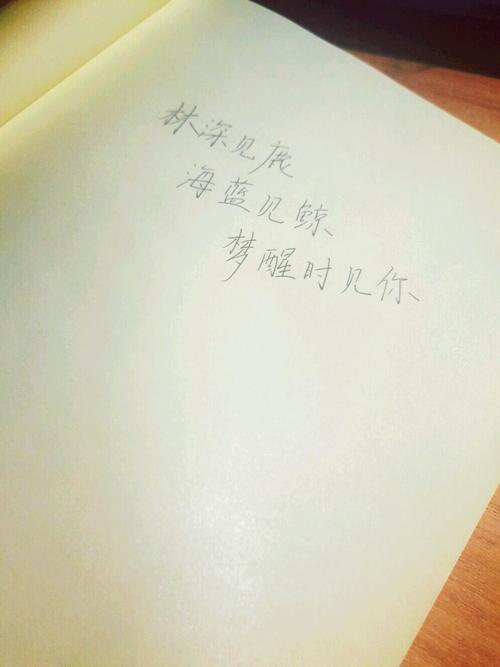 林深见鹿
海蓝见鲸
梦醒时见你